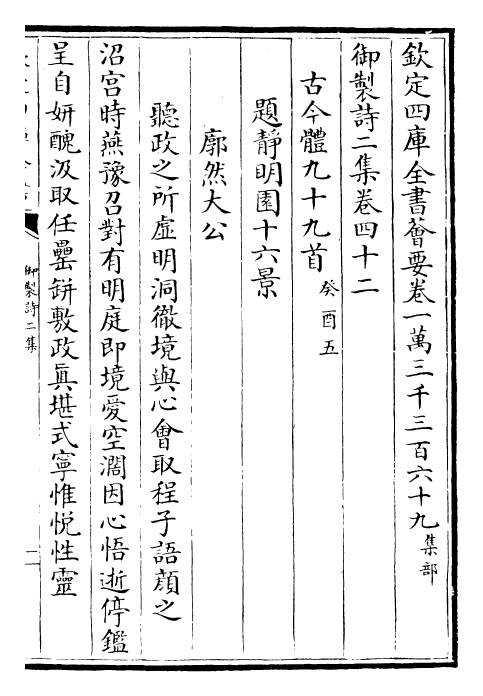 欽定四庫全書薈要卷一萬三千三百六十九集部
御製詩二集卷四十二
古今體九十九首癸酉五
題靜明園十六景
廓然大公
聽政之所虛明洞徹境與心會取程子語顔之
沼宮時燕豫召對有明庭即境愛空濶因心悟逝停鑑
呈自妍醜汲取任罍缾敷政真堪式寧惟悦性靈
御製詩二集
一